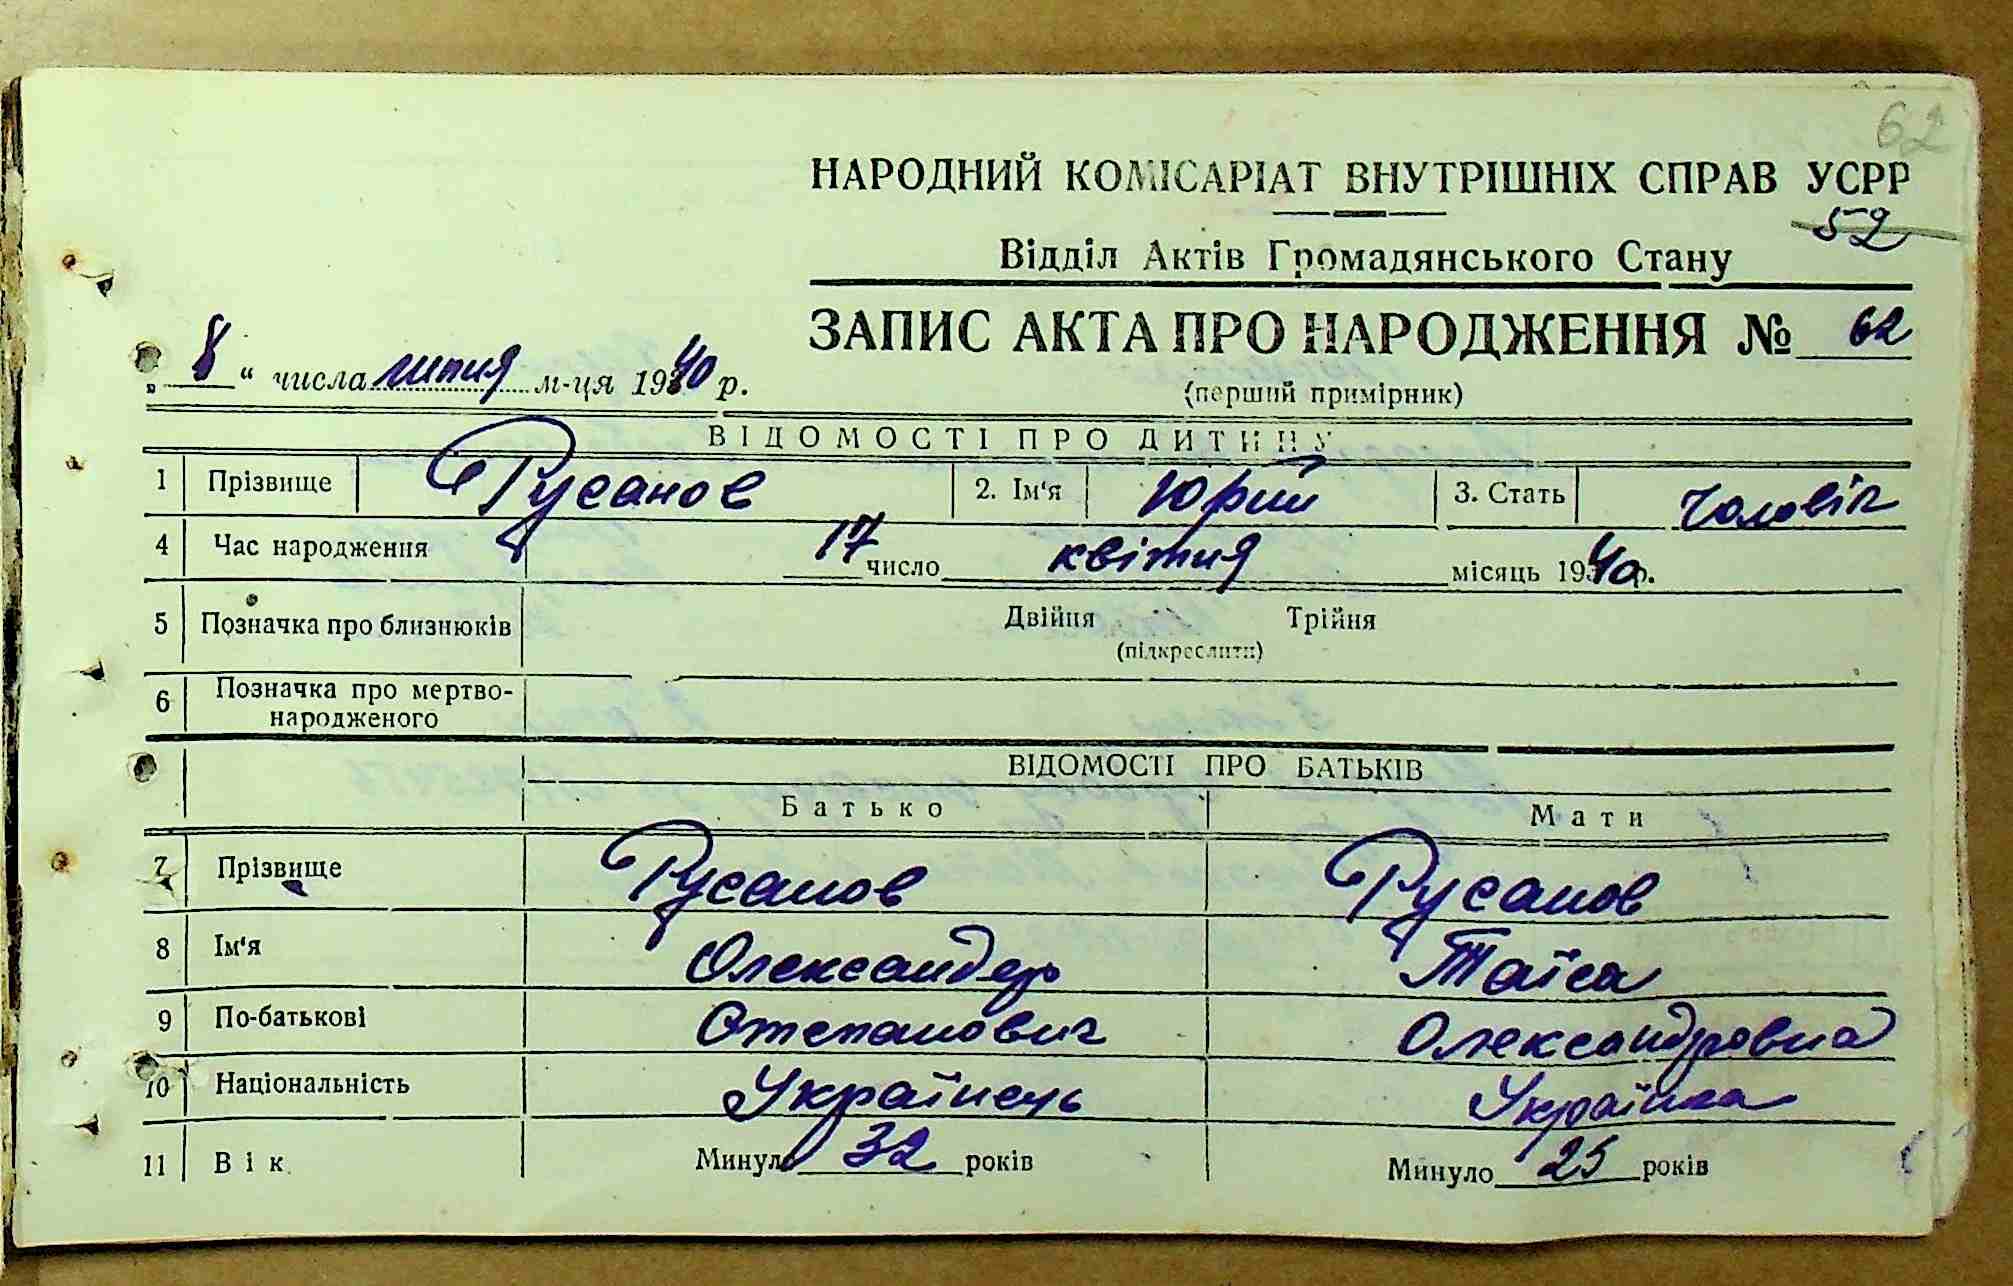 62
НАРОДНИЙ КОМІСАРІАТ ВНУТРІШНІХ СПРАВ УСРР
52
Відділ Актів Громадянського Стану
ЗАПИС АКТА ПРО НАРОДЖЕННЯ № 62
„ 8 “ числа липня м-ця 1940 р.
(перший примірник)
ВІДОМОСТІ ПРО ДИТИНУ
1 Прізвище Русанов 2. Ім'я Юрий 3. Стать Чоловік
4 Час народження 17 число квітня місяць 1940 р.
5 Позначка про близнюків Двійня Трійня
(підкреслити)
6 Позначка про мертво-
народженого
ВІДОМОСТІ ПРО БАТЬКІВ
Батько Мати
7 Прізвище Русанов Русанов
8 Ім'я Олександр Таїса
9 По-батькові Степанович Олександровна
10 Національність Українець Українка
11 Вік Минуло 32 років Минуло 25 років